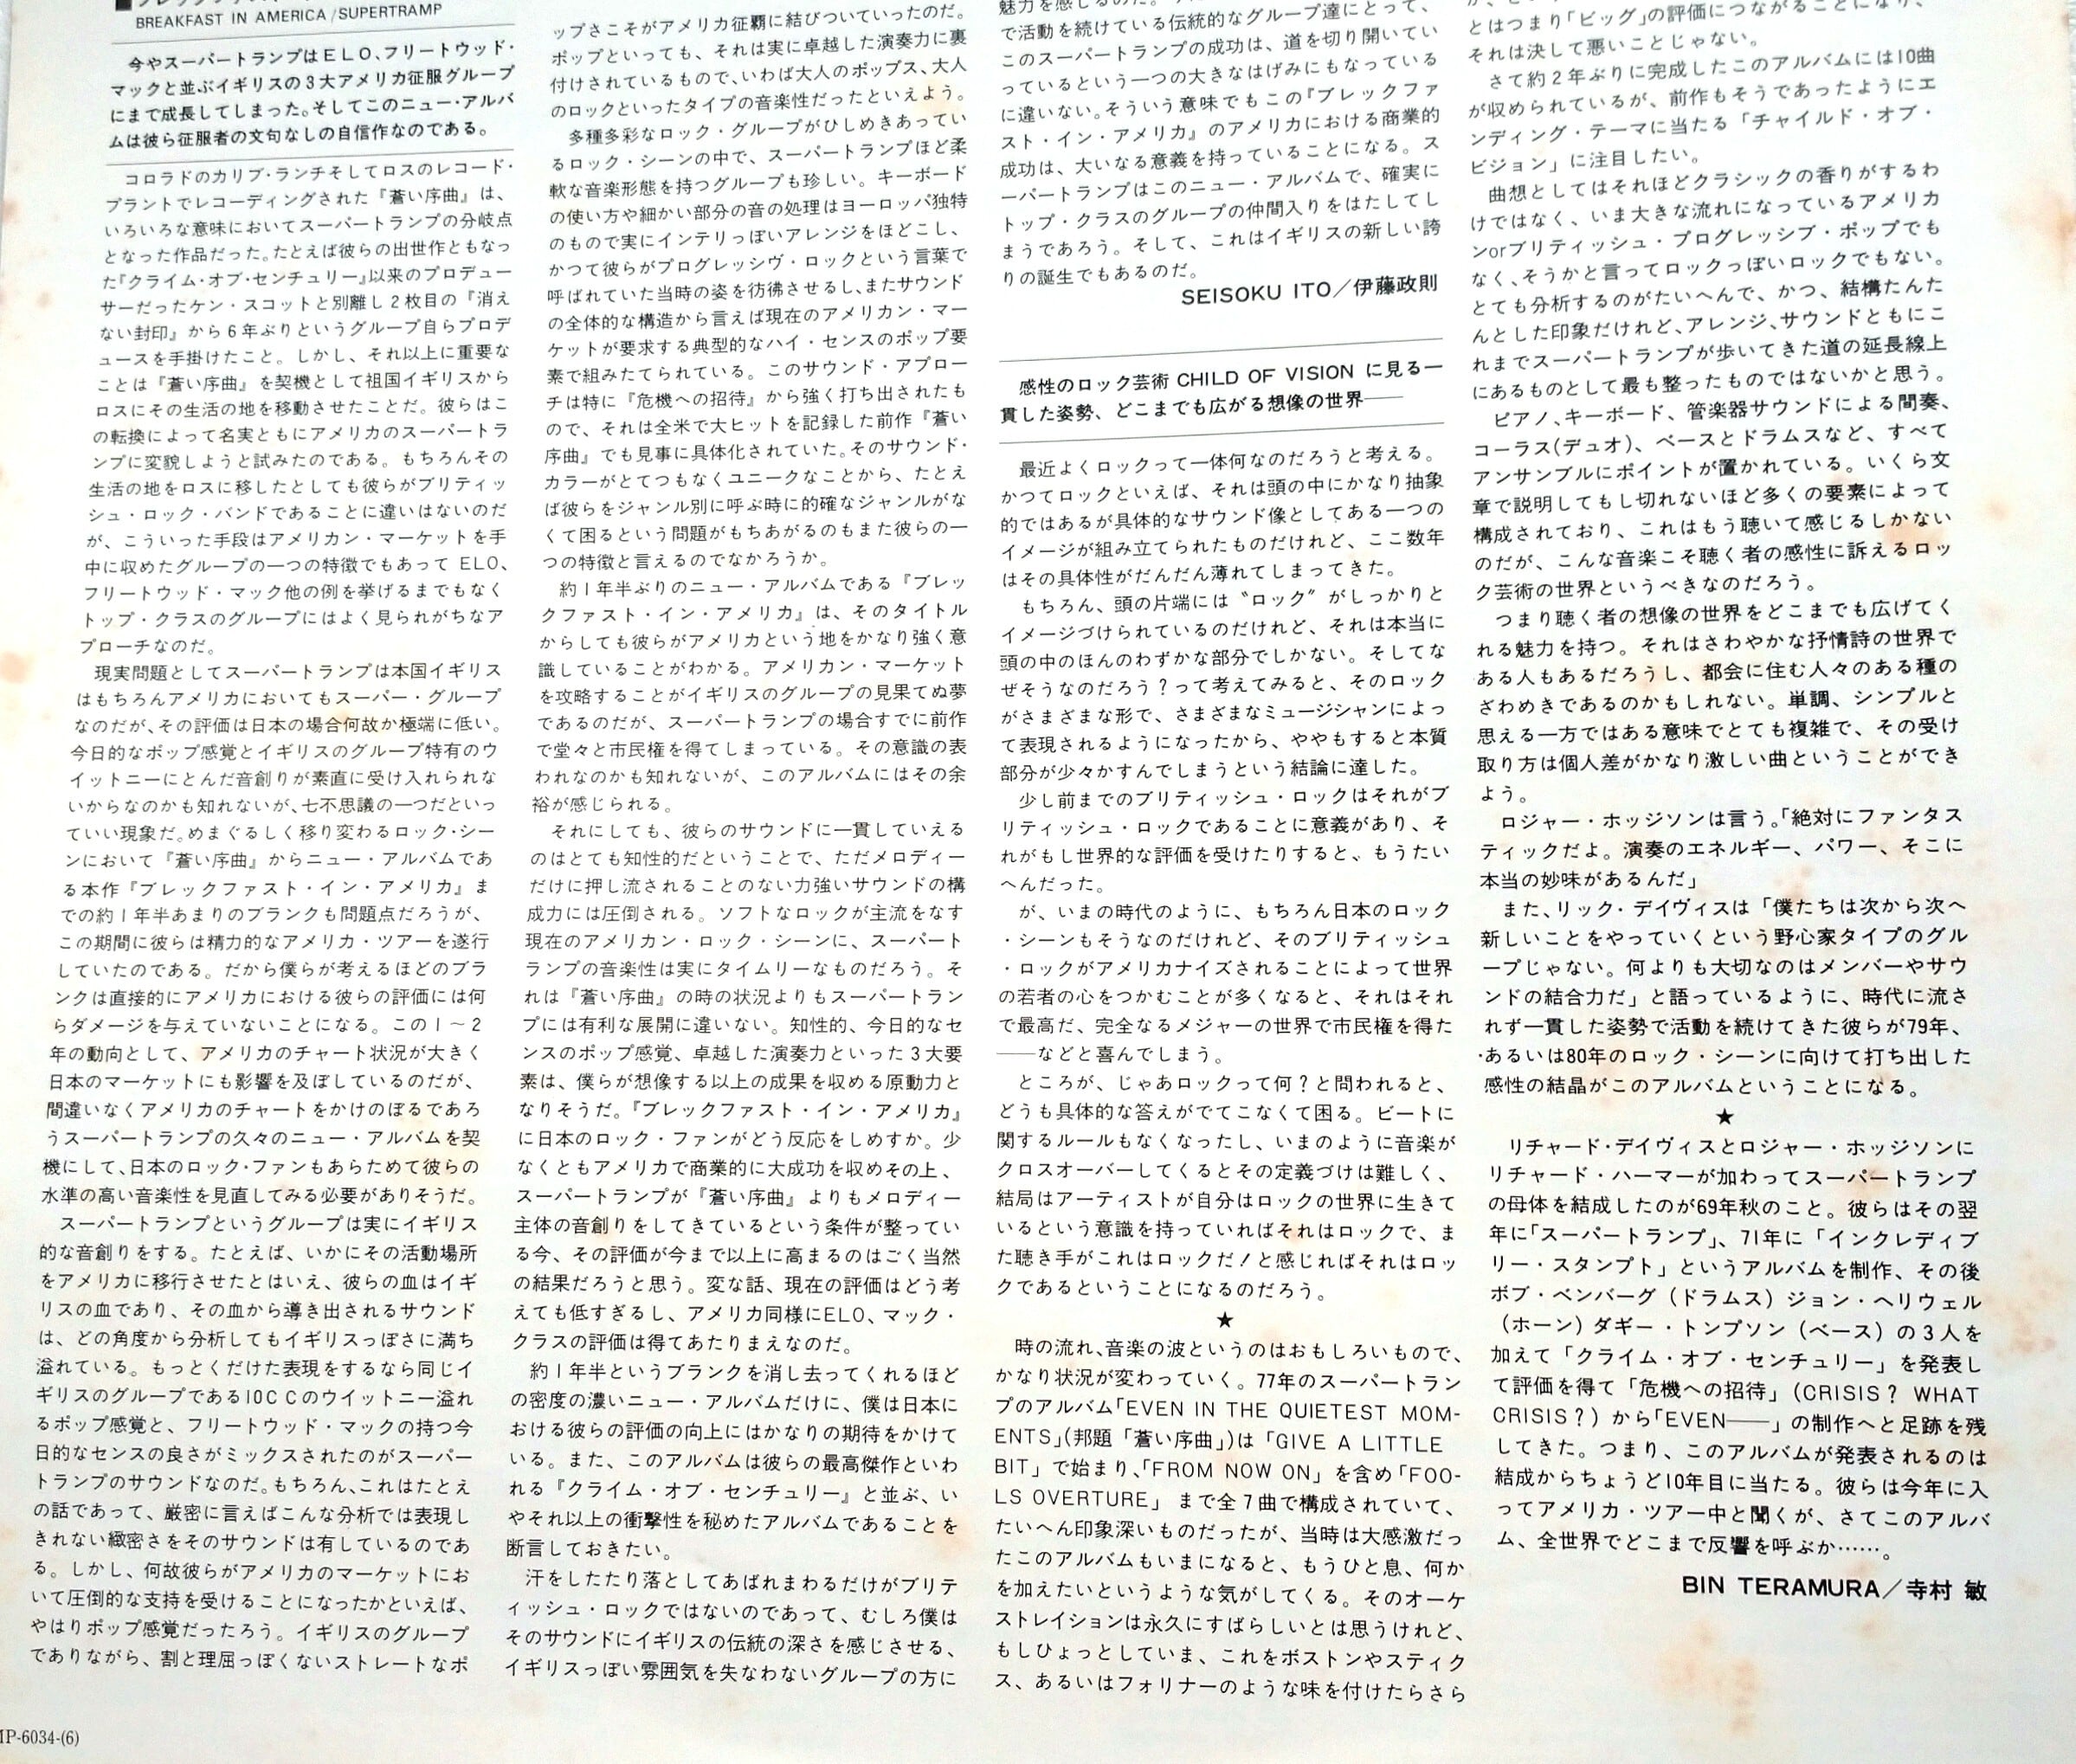 BREAKFAST IN AMERICA/SUPERTRAMP
今やスーパートランプはＥＬＯ、フリートウッド・
マックと並ぶイギリスの３大アメリカ征服グループ
にまで成長してしまった。そしてこのニュー・アルバ
ムは彼ら征服者の文句なしの自信作なのである。
コロラドのカリブ・ランチそしてロスのレコード・
プラントでレコーディングされた『蒼い序曲』は、
いろいろな意味においてスーパートランプの分岐点
となった作品だった。たとえば彼らの出世作ともなっ
た『クライム・オブ・センチュリー』以来のプロデュー
サーだったケン・スコットと別離し２枚目の『消え
ない封印』から６年ぶりというグループ自らプロデ
ュースを手掛けたこと。しかし、それ以上に重要な
ことは『蒼い序曲』を契機として祖国イギリスから
ロスにその生活の地を移動させたことだ。彼らはこ
の転換によって名実ともにアメリカのスーパートラ
ンプに変貌しようと試みたのである。もちろんその
生活の地をロスに移したとしても彼らがブリティッ
シュ・ロック・バンドであることに違いはないのだ
が、こういった手段はアメリカン・マーケットを手
中に収めたグループの一つの特徴でもあって ELO、
フリートウッド・マック他の例を挙げるまでもなく
トップ・クラスのグループにはよく見られがちなア
プローチなのだ。
現実問題としてスーパートランプは本国イギリス
はもちろんアメリカにおいてもスーパー・グループ
なのだが、その評価は日本の場合何故か極端に低い。
今日的なポップ感覚とイギリスのグループ特有のウ
イットニーにとんだ音創りが素直に受け入れられな
いからなのかも知れないが、七不思議の一つだといっ
ていい現象だ。めまぐるしく移り変わるロック・シー
ンにおいて『蒼い序曲』からニュー・アルバムであ
る本作『ブレックファスト・イン・アメリカ』ま
での約１年半あまりのブランクも問題点だろうが、
この期間に彼らは精力的なアメリカ・ツアーを遂行
していたのである。だから僕らが考えるほどのブラ
ンクは直接的にアメリカにおける彼らの評価には何
らダメージを与えていないことになる。この１～２
年の動向として、アメリカのチャート状況が大きく
日本のマーケットにも影響を及ぼしているのだが、
間違いなくアメリカのチャートをかけのぼるであろ
うスーパートランプの久々のニュー・アルバムを契
機にして、日本のロック・ファンもあらためて彼らの
水準の高い音楽性を見直してみる必要がありそうだ。
スーパートランプというグループは実にイギリス
的な音創りをする。たとえば、いかにその活動場所
をアメリカに移行させたとはいえ、彼らの血はイギ
リスの血であり、その血から導き出されるサウンド
は、どの角度から分析してもイギリスっぽさに満ち
溢れている。もっとくだけた表現をするなら同じイ
ギリスのグループである10ＣＣのウイットニー溢れ
るポップ感覚と、フリートウッド・マックの持つ今
日的なセンスの良さがミックスされたのがスーパー
トランプのサウンドなのだ。もちろん、これはたとえ
の話であって、厳密に言えばこんな分析では表現し
きれない緻密さをそのサウンドは有しているのであ
る。しかし、何故彼らがアメリカのマーケットにお
いて圧倒的な支持を受けることになったかといえば、
やはりポップ感覚だったろう。イギリスのグループ
でありながら、割と理屈っぽくないストレートなポ
ップさこそがアメリカ征覇に結びついていったのだ。
ポップといっても、それは実に卓越した演奏力に裏
付けされているもので、いわば大人のポップス、大人
のロックといったタイプの音楽性だったといえよう。
多種多彩なロック・グループがひしめきあってい
るロック・シーンの中で、スーパートランプほど柔
軟な音楽形態を持つグループも珍しい。キーボード
の使い方や細かい部分の音の処理はヨーロッパ独特
のもので実にインテリっぽいアレンジをほどこし、
かつて彼らがプログレッシヴ・ロックという言葉で
呼ばれていた当時の姿を彷彿させるし、またサウンド
の全体的な構造から言えば現在のアメリカン・マー
ケットが要求する典型的なハイ・センスのポップ要
素で組みたてられている。このサウンド・アプロー
チは特に『危機への招待』から強く打ち出されたも
ので、それは全米で大ヒットを記録した前作『蒼い
序曲』でも見事に具体化されていた。そのサウンド・
カラーがとてつもなくユニークなことから、たとえ
ば彼らをジャンル別に呼ぶ時に的確なジャンルがな
くて困るという問題がもちあがるのもまた彼らの一
つの特徴と言えるのでなかろうか。
約１年半ぶりのニュー・アルバムである『ブレッ
クファスト・イン・アメリカ』は、そのタイトル
からしても彼らがアメリカという地をかなり強く意
識していることがわかる。アメリカン・マーケット
を攻略することがイギリスのグループの見果てぬ夢
であるのだが、スーパートランプの場合すでに前作
で堂々と市民権を得てしまっている。その意識の表
われなのかも知れないが、このアルバムにはその余
裕が感じられる。
それにしても、彼らのサウンドに一貫していえる
のはとても知性的だということで、ただメロディー
だけに押し流されることのない力強いサウンドの構
成力には圧倒される。ソフトなロックが主流をなす
現在のアメリカン・ロック・シーンに、スーパート
ランプの音楽性は実にタイムリーなものだろう。そ
れは『蒼い序曲』の時の状況よりもスーパートラン
プには有利な展開に違いない。知性的、今日的なセ
ンスのポップ感覚、卓越した演奏力といった３大要
素は、僕らが想像する以上の成果を収める原動力と
なりそうだ。『ブレックファスト・イン・アメリカ』
に日本のロック・ファンがどう反応をしめすか。少
なくともアメリカで商業的に大成功を収めその上、
スーパートランプが『蒼い序曲』よりもメロディー
主体の音創りをしてきているという条件が整ってい
る今、その評価が今まで以上に高まるのはごく当然
の結果だろうと思う。変な話、現在の評価はどう考
えても低すぎるし、アメリカ同様にELO、マック・
クラスの評価は得てあたりまえなのだ。
約１年半というブランクを消し去ってくれるほど
の密度の濃いニュー・アルバムだけに、僕は日本に
おける彼らの評価の向上にはかなりの期待をかけて
いる。また、このアルバムは彼らの最高傑作といわ
れる『クライム・オブ・センチュリー』と並ぶ、い
やそれ以上の衝撃性を秘めたアルバムであることを
断言しておきたい。
汗をしたたり落としてあばれまわるだけがブリテ
ィッシュ・ロックではないのであって、むしろ僕は
そのサウンドにイギリスの伝統の深さを感じさせる、
イギリスっぽい雰囲気を失なわないグループの方に
で活動を続けている伝統的なグループ達にとって、
このスーパートランプの成功は、道を切り開いてい
っているという一つの大きなはげみにもなっている
に違いない。そういう意味でもこの『ブレックファ
スト・イン・アメリカ』のアメリカにおける商業的
成功は、大いなる意義を持っていることになる。ス
ーパートランプはこのニュー・アルバムで、確実に
トップ・クラスのグループの仲間入りをはたしてし
まうであろう。そして、これはイギリスの新しい誇
りの誕生でもあるのだ。
SEISOKU ITO／伊藤政則
感性のロック芸術 CHILD OF VISION に見る一
貫した姿勢、どこまでも広がる想像の世界――
最近よくロックって一体何なのだろうと考える。
かつてロックといえば、それは頭の中にかなり抽象
的ではあるが具体的なサウンド像としてある一つの
イメージが組み立てられたものだけれど、ここ数年
はその具体性がだんだん薄れてしまってきた。
もちろん、頭の片端には〝ロック〟がしっかりと
イメージづけられているのだけれど、それは本当に
頭の中のほんのわずかな部分でしかない。そしてな
ぜそうなのだろう？って考えてみると、そのロック
がさまざまな形で、さまざまなミュージシャンによっ
て表現されるようになったから、ややもすると本質
部分が少々かすんでしまうという結論に達した。
少し前までのブリティッシュ・ロックはそれがブ
リティッシュ・ロックであることに意義があり、そ
れがもし世界的な評価を受けたりすると、もうたい
へんだった。
が、いまの時代のように、もちろん日本のロック
・シーンもそうなのだけれど、そのブリティッシュ
・ロックがアメリカナイズされることによって世界
の若者の心をつかむことが多くなると、それはそれ
で最高だ、完全なるメジャーの世界で市民権を得た
――などと喜んでしまう。
ところが、じゃあロックって何？と問われると、
どうも具体的な答えがでてこなくて困る。ビートに
関するルールもなくなったし、いまのように音楽が
クロスオーバーしてくるとその定義づけは難しく、
結局はアーティストが自分はロックの世界に生きて
いるという意識を持っていればそれはロックで、ま
た聴き手がこれはロックだ！と感じればそれはロッ
クであるということになるのだろう。
★
時の流れ、音楽の波というのはおもしろいもので、
かなり状況が変わっていく。77年のスーパートラン
プのアルバム「EVEN IN THE QUIETEST MOM-
ENTS」（邦題「蒼い序曲」）は「GIVE A LITTLE
BIT」で始まり、「FROM NOW ON」を含め「FOO-
LS OVERTURE」まで全７曲で構成されていて、
たいへん印象深いものだったが、当時は大感激だっ
たこのアルバムもいまになると、もうひと息、何か
を加えたいというような気がしてくる。そのオーケ
ストレイションは永久にすばらしいとは思うけれど、
もしひょっとしていま、これをボストンやスティク
ス、あるいはフォリナーのような味を付けたらさら
とはつまり「ビッグ」の評価につながることになり、
それは決して悪いことじゃない。
さて約２年ぶりに完成したこのアルバムには10曲
が収められているが、前作もそうであったようにエ
ンディング・テーマに当たる「チャイルド・オブ・
ビジョン」に注目したい。
曲想としてはそれほどクラシックの香りがするわ
けではなく、いま大きな流れになっているアメリカ
ンorブリティッシュ・プログレッシブ・ポップでも
なく、そうかと言ってロックっぽいロックでもない。
とても分析するのがたいへんで、かつ、結構たんた
んとした印象だけれど、アレンジ、サウンドともにこ
れまでスーパートランプが歩いてきた道の延長線上
にあるものとして最も整ったものではないかと思う。
ピアノ、キーボード、管楽器サウンドによる間奏、
コーラス（デュオ）、ベースとドラムスなど、すべて
アンサンブルにポイントが置かれている。いくら文
章で説明してもし切れないほど多くの要素によって
構成されており、これはもう聴いて感じるしかない
のだが、こんな音楽こそ聴く者の感性に訴えるロッ
ク芸術の世界というべきなのだろう。
つまり聴く者の想像の世界をどこまでも広げてく
れる魅力を持つ。それはさわやかな抒情詩の世界で
ある人もあるだろうし、都会に住む人々のある種の
ざわめきであるのかもしれない。単調、シンプルと
思える一方ではある意味でとても複雑で、その受け
取り方は個人差がかなり激しい曲ということができ
よう。
ロジャー・ホッジソンは言う。「絶対にファンタス
ティックだよ。演奏のエネルギー、パワー、そこに
本当の妙味があるんだ」
また、リック・デイヴィスは「僕たちは次から次へ
新しいことをやっていくという野心家タイプのグル
ープじゃない。何よりも大切なのはメンバーやサウ
ンドの結合力だ」と語っているように、時代に流さ
れず一貫した姿勢で活動を続けてきた彼らが79年、
あるいは80年のロック・シーンに向けて打ち出した
感性の結晶がこのアルバムということになる。
★
リチャード・デイヴィスとロジャー・ホッジソンに
リチャード・ハーマーが加わってスーパートランプ
の母体を結成したのが69年秋のこと。彼らはその翌
年に「スーパートランプ」、71年に「インクレディブ
リー・スタンプト」というアルバムを制作、その後
ボブ・ベンバーグ（ドラムス）ジョン・ヘリウェル
（ホーン）ダギー・トンプソン（ベース）の３人を
加えて「クライム・オブ・センチュリー」を発表し
て評価を得て「危機への招待」（CRISIS？ WHAT
CRISIS？）から「EVEN――」の制作へと足跡を残
してきた。つまり、このアルバムが発表されるのは
結成からちょうど10年目に当たる。彼らは今年に入
ってアメリカ・ツアー中と聞くが、さてこのアルバ
ム、全世界でどこまで反響を呼ぶか……。
BIN TERAMURA／寺村 敏
MP-6034-(6)